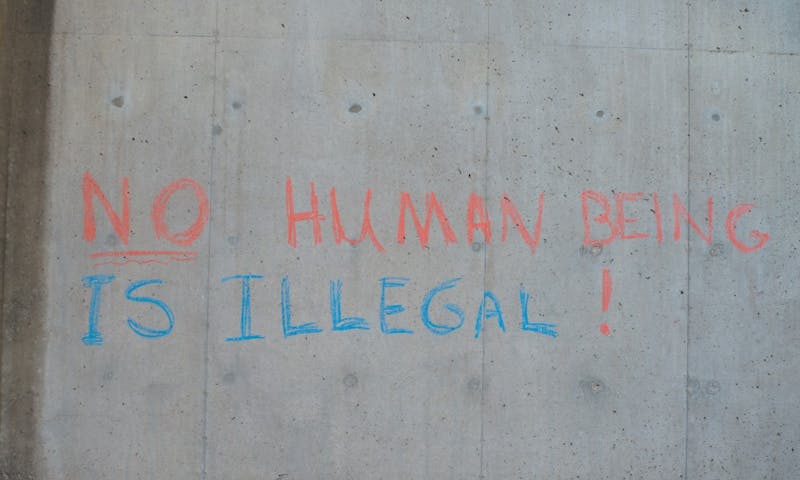 NO HUMAN BEING
IS ILLEGAL !